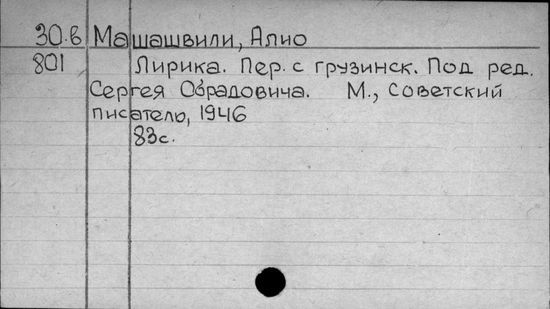 30.в Машашвили, Алио
801 Лирика. Пер. с грузинск. Под ред.
Сергея Обрадовича. М., Советский
писатель, 1946
83с.